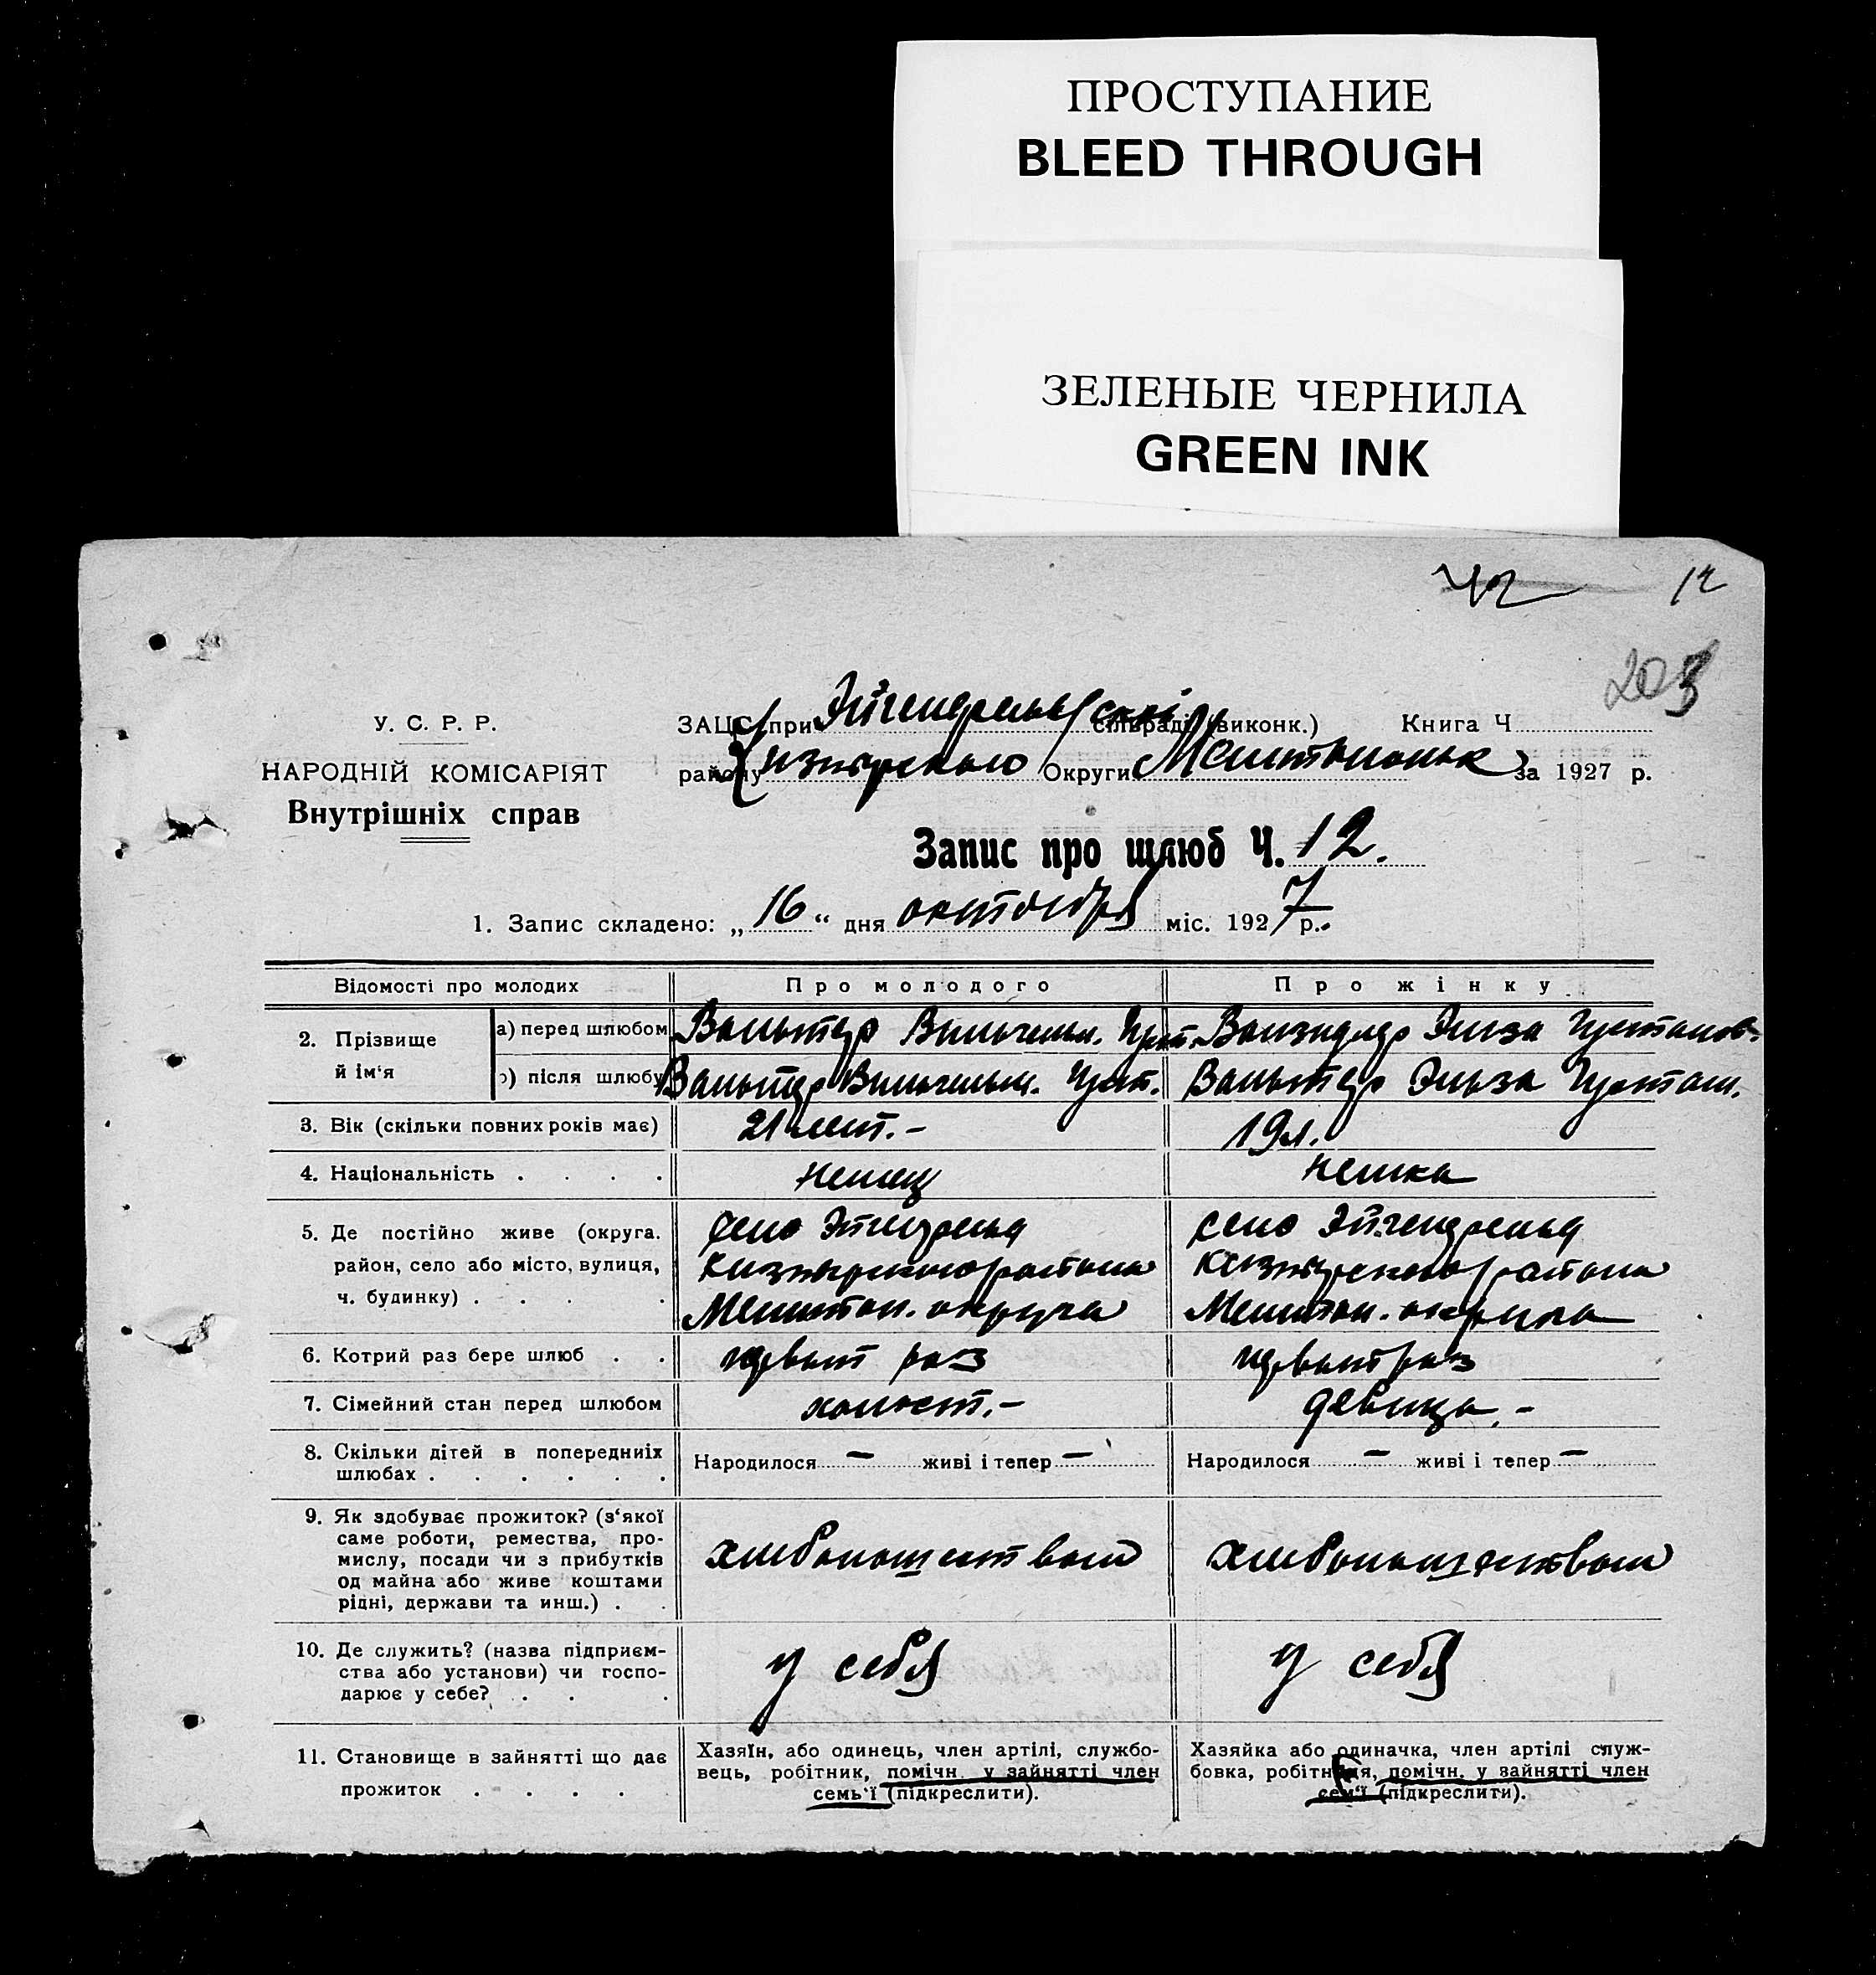 ПРОСТУПАНИЕ
BLEED THROUGH
ЗЕЛЕНЫЕ ЧЕРНИЛА
GREEN INK
42 12
203
У. С. Р. Р.
НАРОДНІЙ КОМІСАРІЯТ
Внутрішніх справ
ЗАЦС при сільраді (виконк.) Книга Ч
району Округи за 1927 р.
Запис про шлюб Ч. 12.
1. Запис складено: „ 16 “ дня октября міс. 1927 р.
Відомості про молодих Про молодого Про жінку
2. Прізвище й ім‘я
а) перед шлюбом Вальтер Вильгельм. Эльза
б) після шлюбу Вальтер Вильгельм. Вальтер Эльза
3. Вік (скільки повних років має) 21 лет.- 19 л.
4. Національність . . . . немец немка
5. Де постійно живе (округа. село Эйгенфельд село Эйгенфельд
район, село або місто, вулиця, района района
ч. будинку) . . . . округа округа
6. Котрий раз бере шлюб . . первый раз первый раз
7. Сімейний стан перед шлюбом холост.- девица.-
8. Скільки дітей в попередниіх
шлюбах . . . . . . Народилося — живі і тепер — Народилося — живі і тепер —
9. Як здобуває прожиток? (з‘якої
саме роботи, ремества, про-
мислу, посади чи з прибутків
од майна або живе коштами
рідні, держави та инш.) . . хлебопашеством хлебопашеством
10. Де служить? (назва підприєм-
ства або установи) чи госпо-
дарює у себе? . . . у себя у себя
11. Становище в зайнятті що дає
прожиток . . . .
Хазяїн, або одинець, член артілі, службо-
вець, робітник, помічн. у зайнятті член
семь‘ї (підкреслити).
Хазяйка або одиначка, член артілі служ-
бовка, робітниця, помічн. у зайнятті член
сем‘ї (підкреслити).